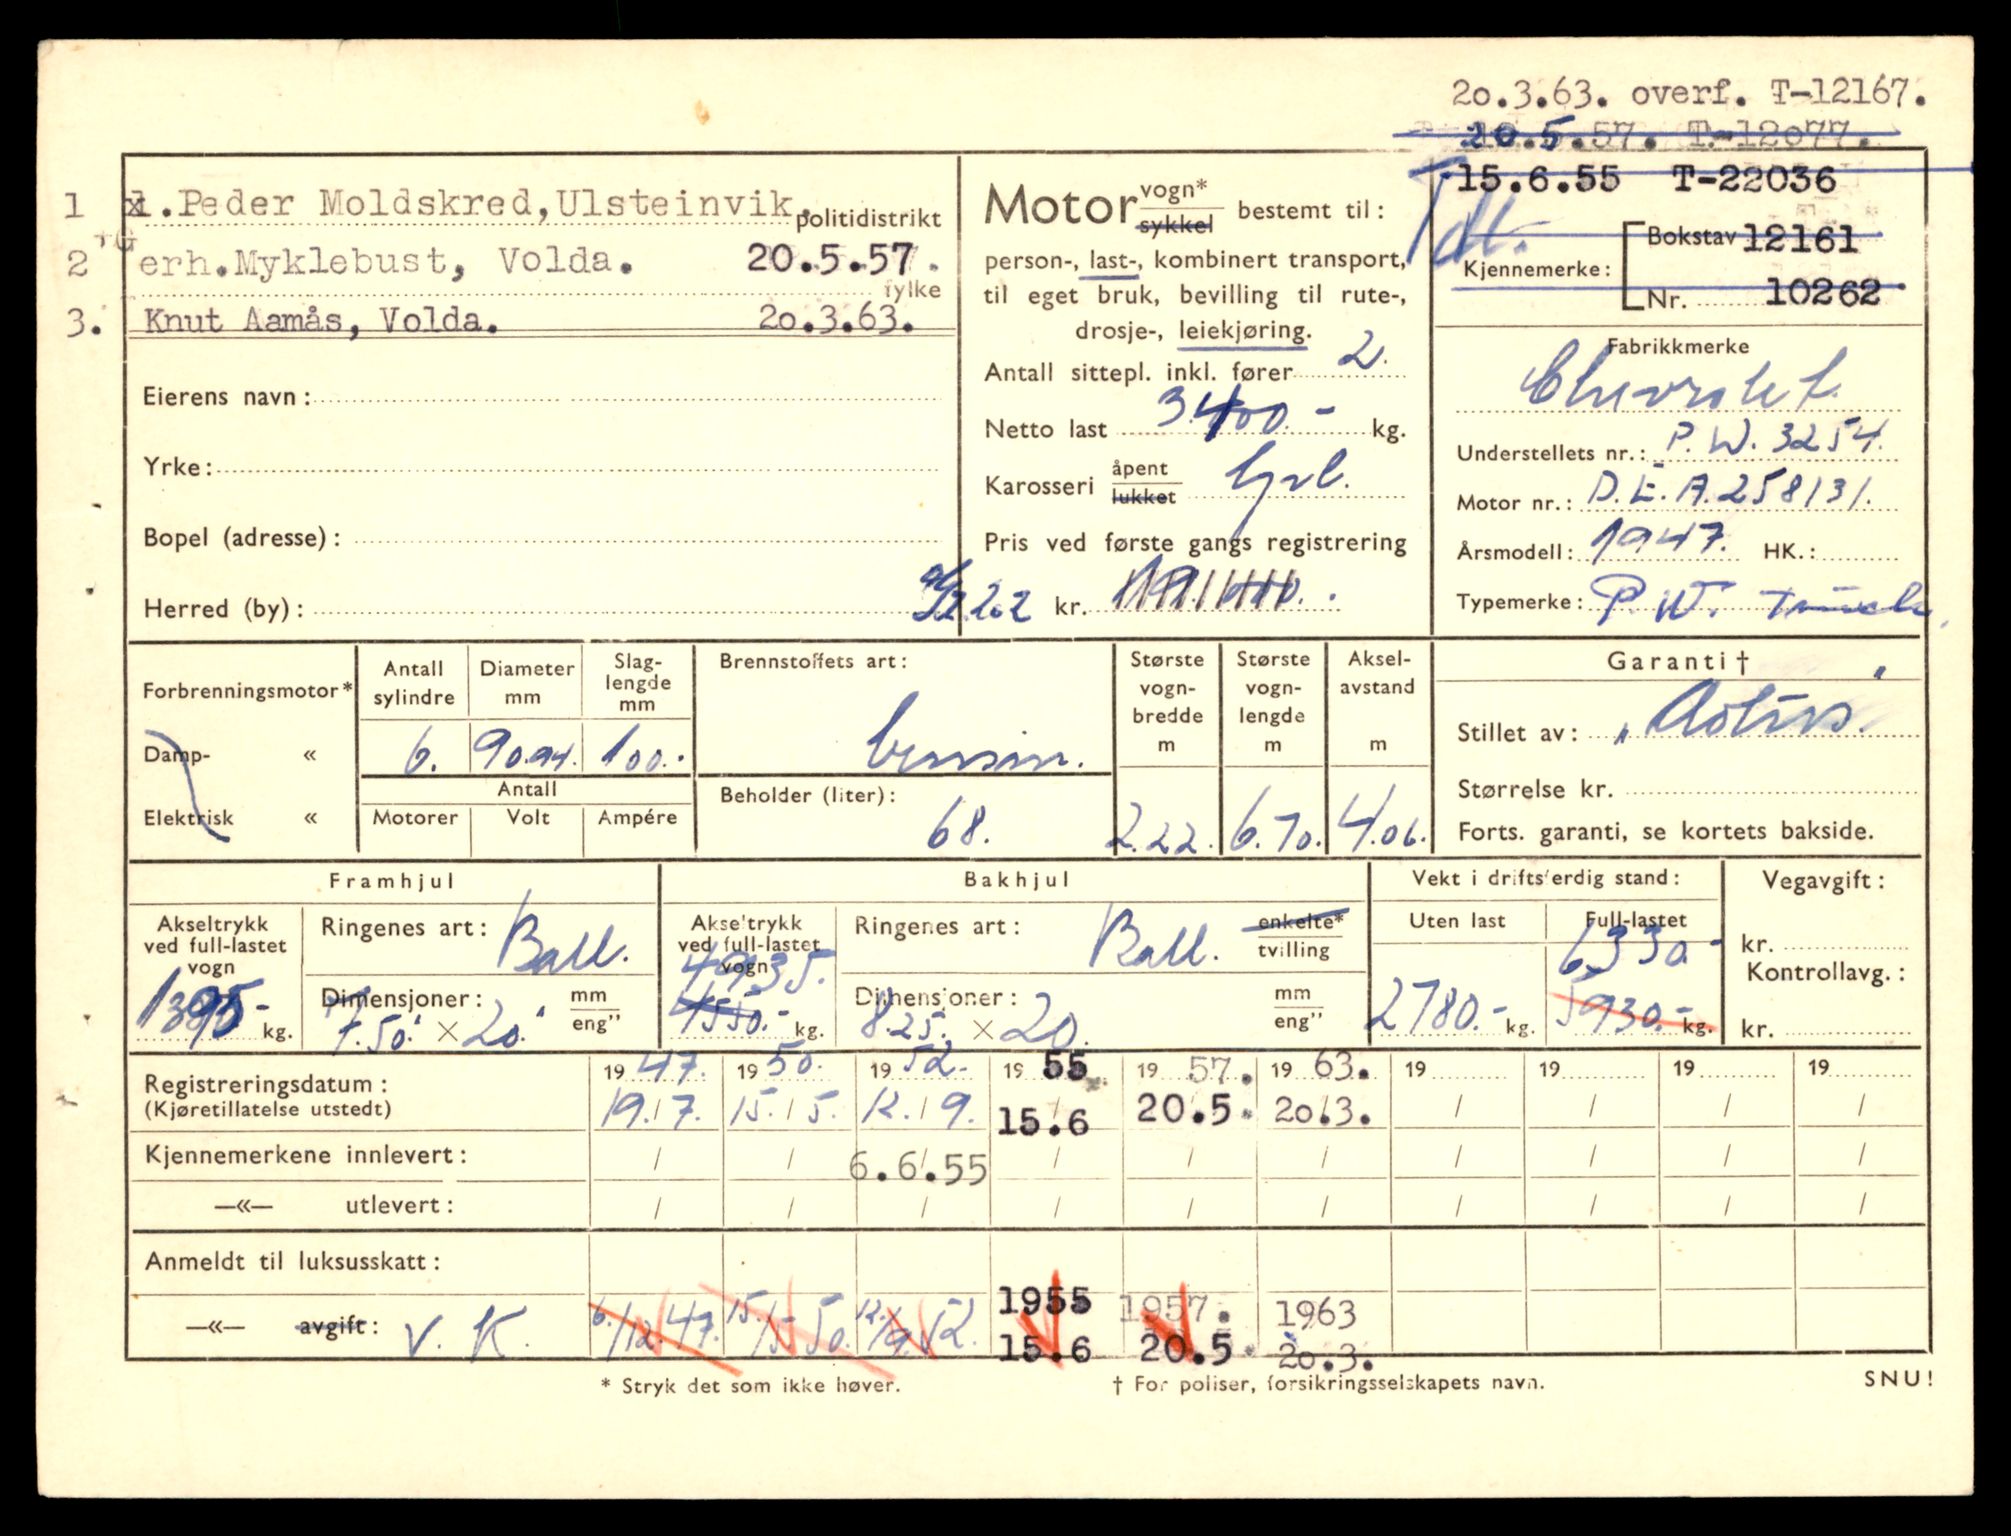 20.3.63. overf. T-12167.
20.5.57. T-12077.
15.6.55 T-22036
1 1.Peder Moldskred,Ulsteinvik, politidistrikt
2 erh.Myklebust, Volda. 20.5.57.
fylke
3. Knut Aamås, Volda. 20.3.63.
Eierens navn:
Yrke:
Bopel (adresse):
Herred (by):
Motor vogn* sykkel bestemt til:
person-, last-, kombinert transport,
til eget bruk, bevilling til rute-,
drosje-, leiekjøring.
Antall sittepl. inkl. fører 2.
Netto last 3400.- kg.
Karosseri åpent lukket
Pris ved første gangs registrering
kr.
Bokstav 12161
Kjennemerke:
Nr. 10262
Fabrikkmerke
Chevrolet.
Understellets nr.: P.W. 3254.
Motor nr.: D.E.A. 258131.
Årsmodell: 1947. HK.:
Typemerke: P.W. Truck
Forbrenningsmotor*
Damp- «
Elektrisk «
Antall sylindre
6.
Diameter mm
90.94.
Slag-lengde mm
100.
Antall
Motorer Volt Ampére
Brennstoffets art:
bensin.
Beholder (liter):
68.
Største vogn-bredde m
2.22.
Største vogn-lengde m
6.70.
Aksel-avstand m
4.06.
Garanti †
Stillet av:
Størrelse kr.
Forts. garanti, se kortets bakside.
Framhjul
Akseltrykk
ved full-lastet
vogn
1395- kg.
Ringenes art: Ball.
Dimensjoner: mm eng"
7.50. × 20.
Bakhjul
Akseltrykk
ved full-lastet
vogn
4935.
4550.- kg.
Ringenes art: Ball. enkelte* tvilling
Dimensjoner: mm eng"
8.25. × 20.
Vekt i driftsferdig stand:
Uten last Full-lastet
6330.-
2780.- kg. 5930.- kg.
Vegavgift:
kr.
Kontrollavg.:
kr.
Registreringsdatum: 1947. 1950. 1952. 1955 1957. 1963. 19 19 19 19
(Kjøretillatelse utstedt) 19./7. 15./5. 12./9. 15.6 20.5 20.3. / / / /
Kjennemerkene innlevert: / / 6.6.55 / / / / / / /
—«— utlevert: / / / / / / / / / /
Anmeldt til luksusskatt:
—«— avgift: V. K. 6./12.47. 15./5 50. 12./9.52. 1955 15.6 1957. 20.5 1963 20.3.
* Stryk det som ikke høver.
† For poliser, forsikringsselskapets navn.
SNU!